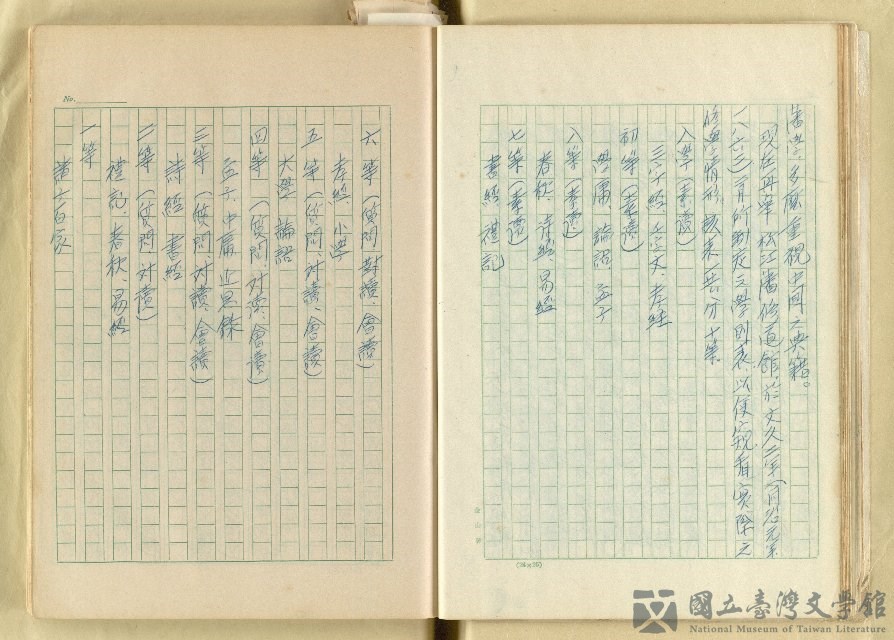 藩學、多麼重視中國之典籍。
現在再舉 松江藩修道館於文久三年一月(公元
一八六三)一月所制定之學則表,以便窺看實際之
修學情形,該表共分十等
入學(素讀)
三字經、千字文、孝經
初等(素讀)
學庸 論語 孟子
八等(素讀)
春秋、詩經、易經
七等(素讀)
書經 禮記
No.
六等(質問 對讀、會讀)
孝經 小學
五等(質問、对讀、會讀)
大學 論語
四等(質問、对讀、會讀)
孟子、中庸 近思錄
三等(質問、对讀、會讀)
詩經 書經
二等(質問、对讀)
禮記、春秋、易經
一等
諸子百家
國立臺灣文學館
National Museum of Taiwan Literature